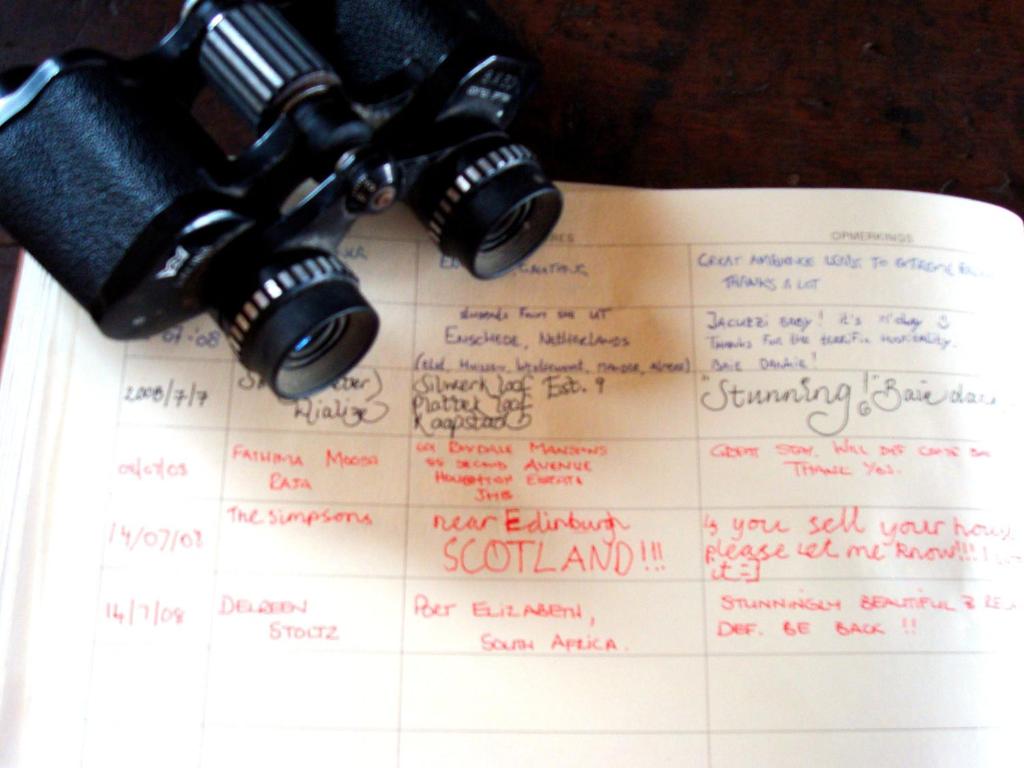 OPMERKINGS
GREAT AMBIENCE
THANKS A LOT
07-'08
students From the UT
Enschede, Netherlands
Jacuzzi baby! it's
Thanks for the terrific hospitality.
Baie Dankie!
2008/7/7
Dialize
Silwerkloof Est. 9
Plattekloof
Kaapstad
"Stunning!" Baie
/07/08
Fathima Moosa
Raja
Mansions
Second Avenue
Houghton Estate
JHB
Great stay. Will
Thank you.
14/07/08
The Simpsons
near Edinburgh
SCOTLAND!!!
If you sell your
please let me know!!!!
it =]
14/7/08
Delreen
Stoltz
Port Elizabeth,
South Africa.
Stunningly beautiful &
Def. be back !!